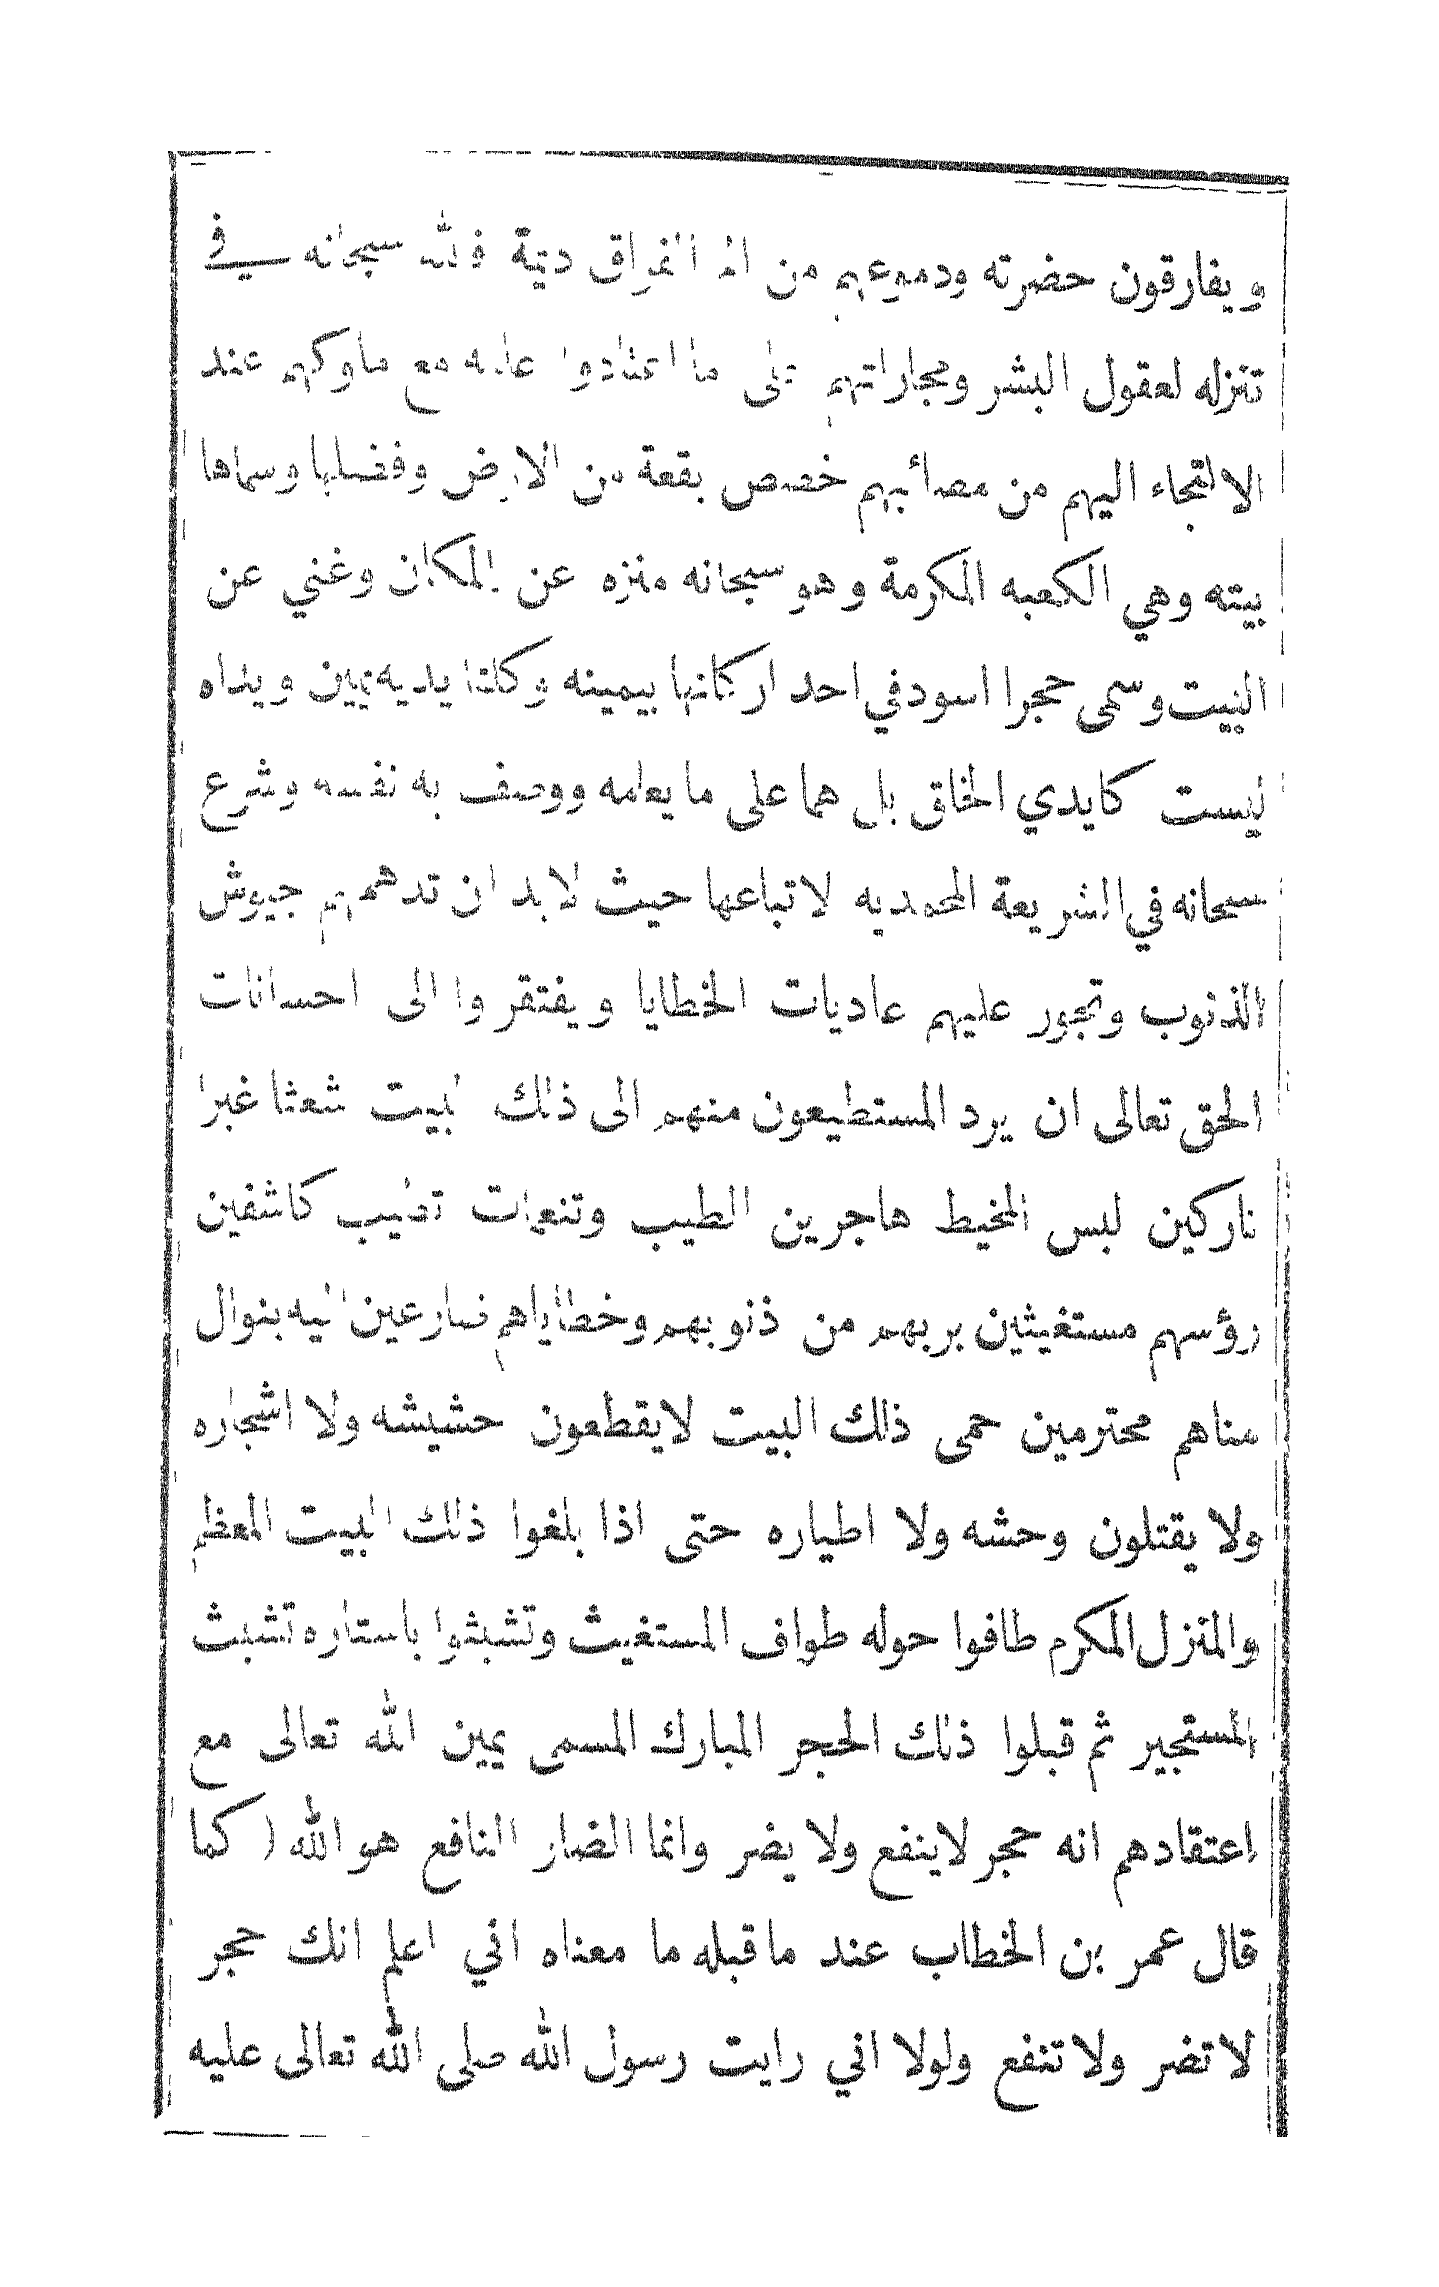 ويفارقون حضرته ودموعهم من الم الفراق ديمة فالله سبحانه في
تنزله لعقول البشر ومجاراتهم على ما اعتادوا عليه مع ملوكهم عند
الالتجاء اليهم من مصائبهم خصص بقعة من الارض وفضلها وسماها
بيته وهي الكعبه المكرمة وهو سبحانه منزه عن المكان وغني عن
البيت وسمى حجرا اسود في احد اركانها بيمينه وكلتا يديه يمين ويداه
ليست كايدي الخلق بل هما على ما يعلمه ووصف به نفسه وشرع
سبحانه في الشريعة المحمديه لاتباعها حيث لابد ان تدهمهم جيوش
الذنوب وتجور عليهم عاديات الخطايا ويفتقروا الى احسانات
الحق تعالى ان يرد المستطيعون منهم الى ذلك البيت شعثا غبرا
تاركين لبس المخيط هاجرين الطيب وتنعمات تطيب كاشفين
رؤسهم مستغيثين بربهم من ذنوبهم وخطاياهم ضارعين اليه بنوال
مناهم محترمين حمى ذلك البيت لايقطعون حشيشه ولا اشجاره
ولا يقتلون وحشه ولا اطياره حتى اذا بلغوا ذلك البيت المعظم
والمنزل المكرم طافوا حوله طواف المستغيث وتشبثوا باستاره تشبث
المستجير ثم قبلوا ذلك الحجر المبارك المسمى يمين الله تعالى مع
اعتقادهم انه حجر لاينفع ولا يضر وانما الضار النافع هو الله ( كما
قال عمر بن الخطاب عند ما قبله ما معناه اني اعلم انك حجر
لا تضر ولا تنفع ولولا اني رايت رسول الله صلى الله تعالى عليه